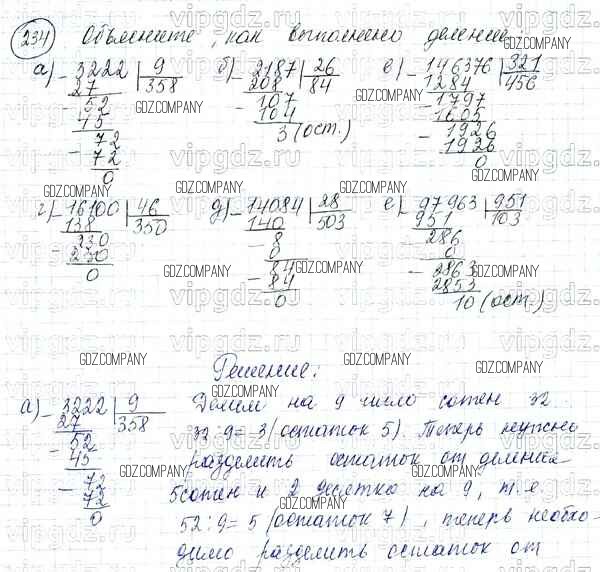 234 Объясните, как выполнено деление
а) 3222 | 9   б) 2187 | 26   в) 146376 | 321
27 | 358   208 | 84   1284 | 456
52   107   1797
45   104   1605
72   3 (ост.)   1926
72   1926
0   0
г) 16100 | 46   д) 14084 | 28   е) 97963 | 951
138 | 350   140 | 503   951 | 103
230   8   286
230   0   0
0   84   2863
84   2853
0   10 (ост.)
Решение:
а) 3222 | 9   Делим на 9 число сотен 32.
27 | 358   32:9=3 (остаток 5). Теперь нужно
52   разделить остаток от деления
45   5 сотен и 2 десятка на 9, т.е.
72   52:9=5 (остаток 7), теперь необхо-
72   димо разделить остаток от
0
GDZ.COMPANY
vipgdz.ru